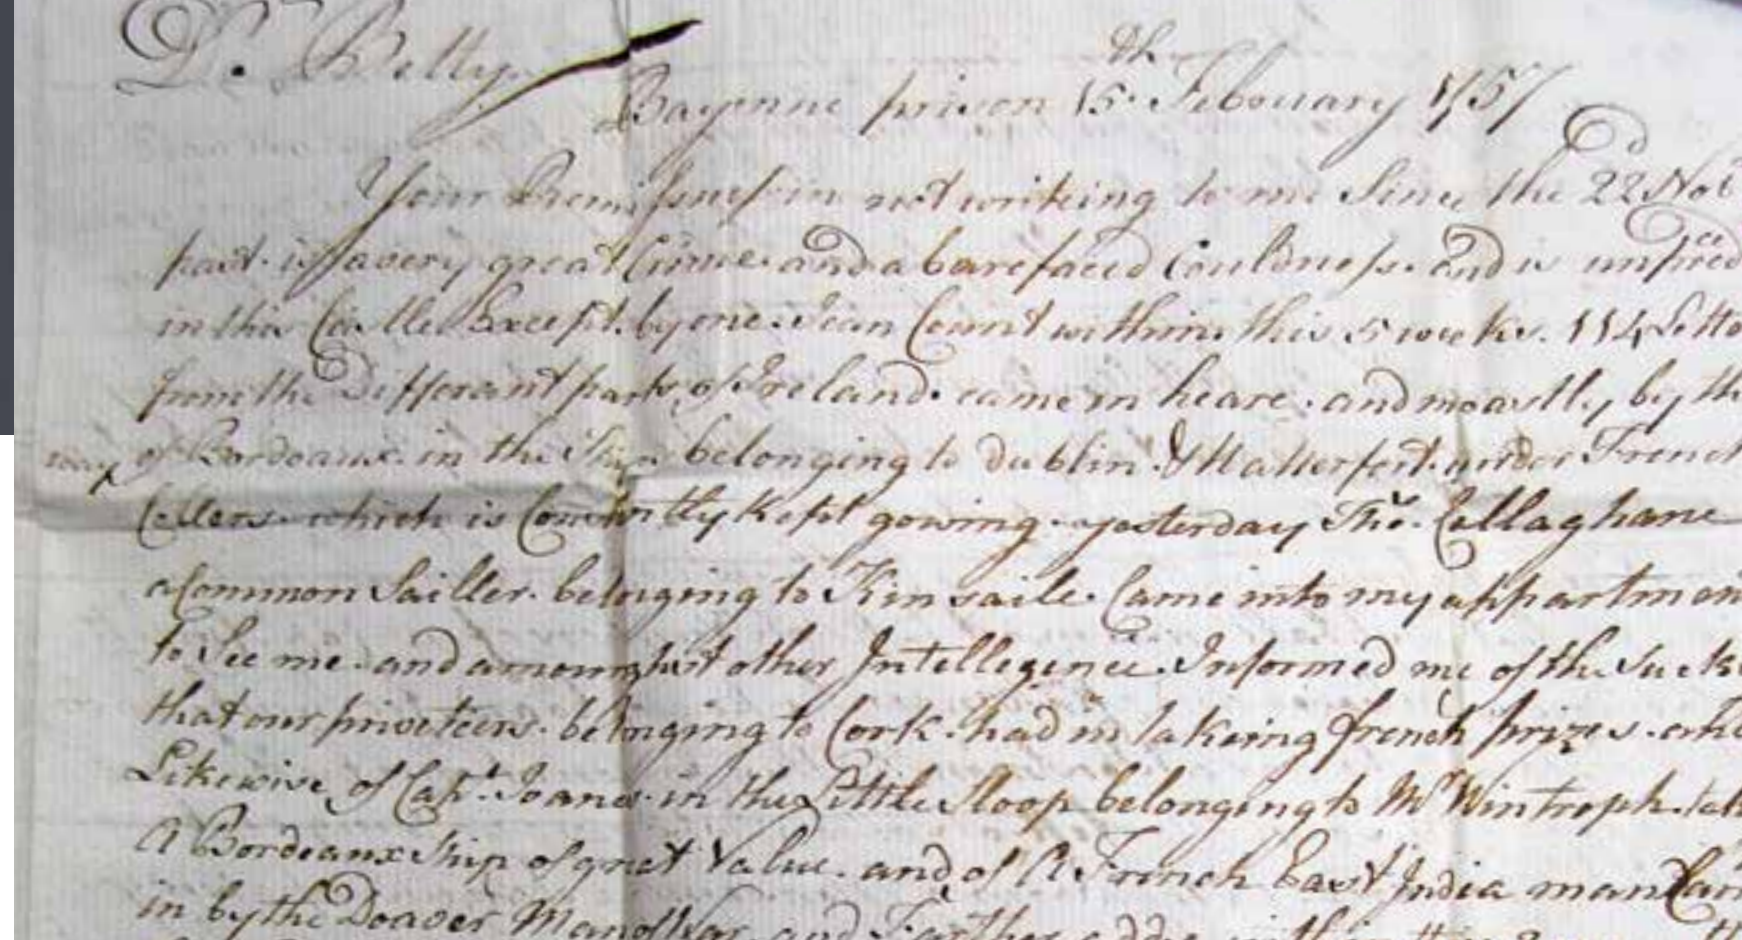 Dr. Betty
Bayonne prison 15th February 1757
Your Remissness in not writing to me Since the 22d Nov
past is a very great Crime and a barefaced Couldness. and is unpreced
in this Castle Except by one. Sean Count within this 5 weeks. 114 Lette
from the Differant parts of Ireland. came in heare. and moastly by th
of Bordeaux. in the Ships belonging to Dublin & Watterfort. under French
Cellers. which is Constantly Kept gowing. yesterday Thos. Callaghane
a Common Sailler. belonging to Kinsaile. Came into my appartmen
to See me. and amoungst other Intelligence. Informed me of the Suck
that our priveteers. belonging to Cork. had in takeing french prizes. and
Likewise of Capt. Joanes. in the Little Sloop belonging to Mr Wintroph. tak
A Bordeaux Ship of gret Value. and of A French East India man
in by the Doaver Man of War. and Farther adds